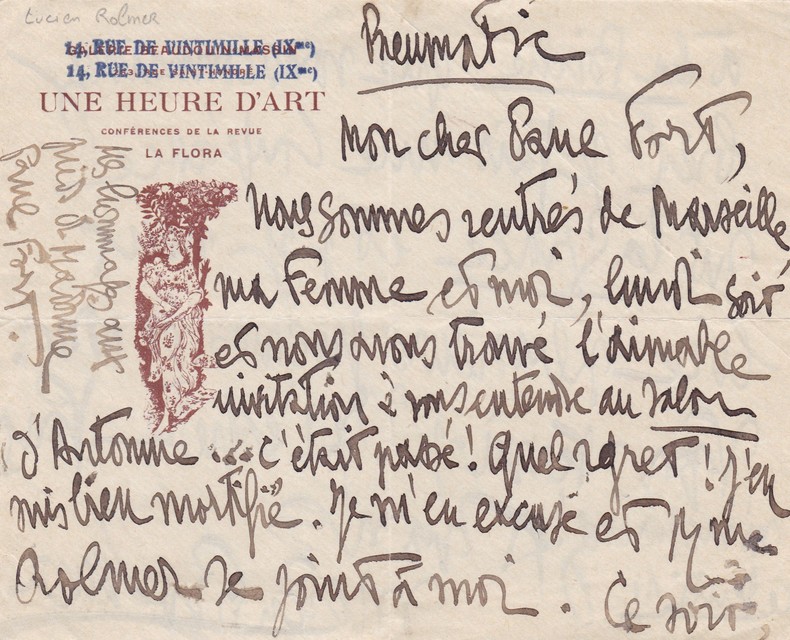 Lucien Rolmer
14, RUE DE VINTIMILLE (IXme)
14, RUE DE VINTIMILLE (IXme)
UNE HEURE D'ART
CONFÉRENCES DE LA REVUE
LA FLORA
Pneumatic
Mon cher Paul Fort,
Nous sommes rentrés de Marseille
ma Femme et moi, lundi soir
et nous avons trouvé l'aimable
invitation à vous entendre au Salon
d'Automne... c'était passé! Quel regret! J'en
suis bien mortifié. Je m'en excuse et Mme
Rolmer se joint à moi. Ce soir
hommages aux
pieds de Madame
Paul Fort.